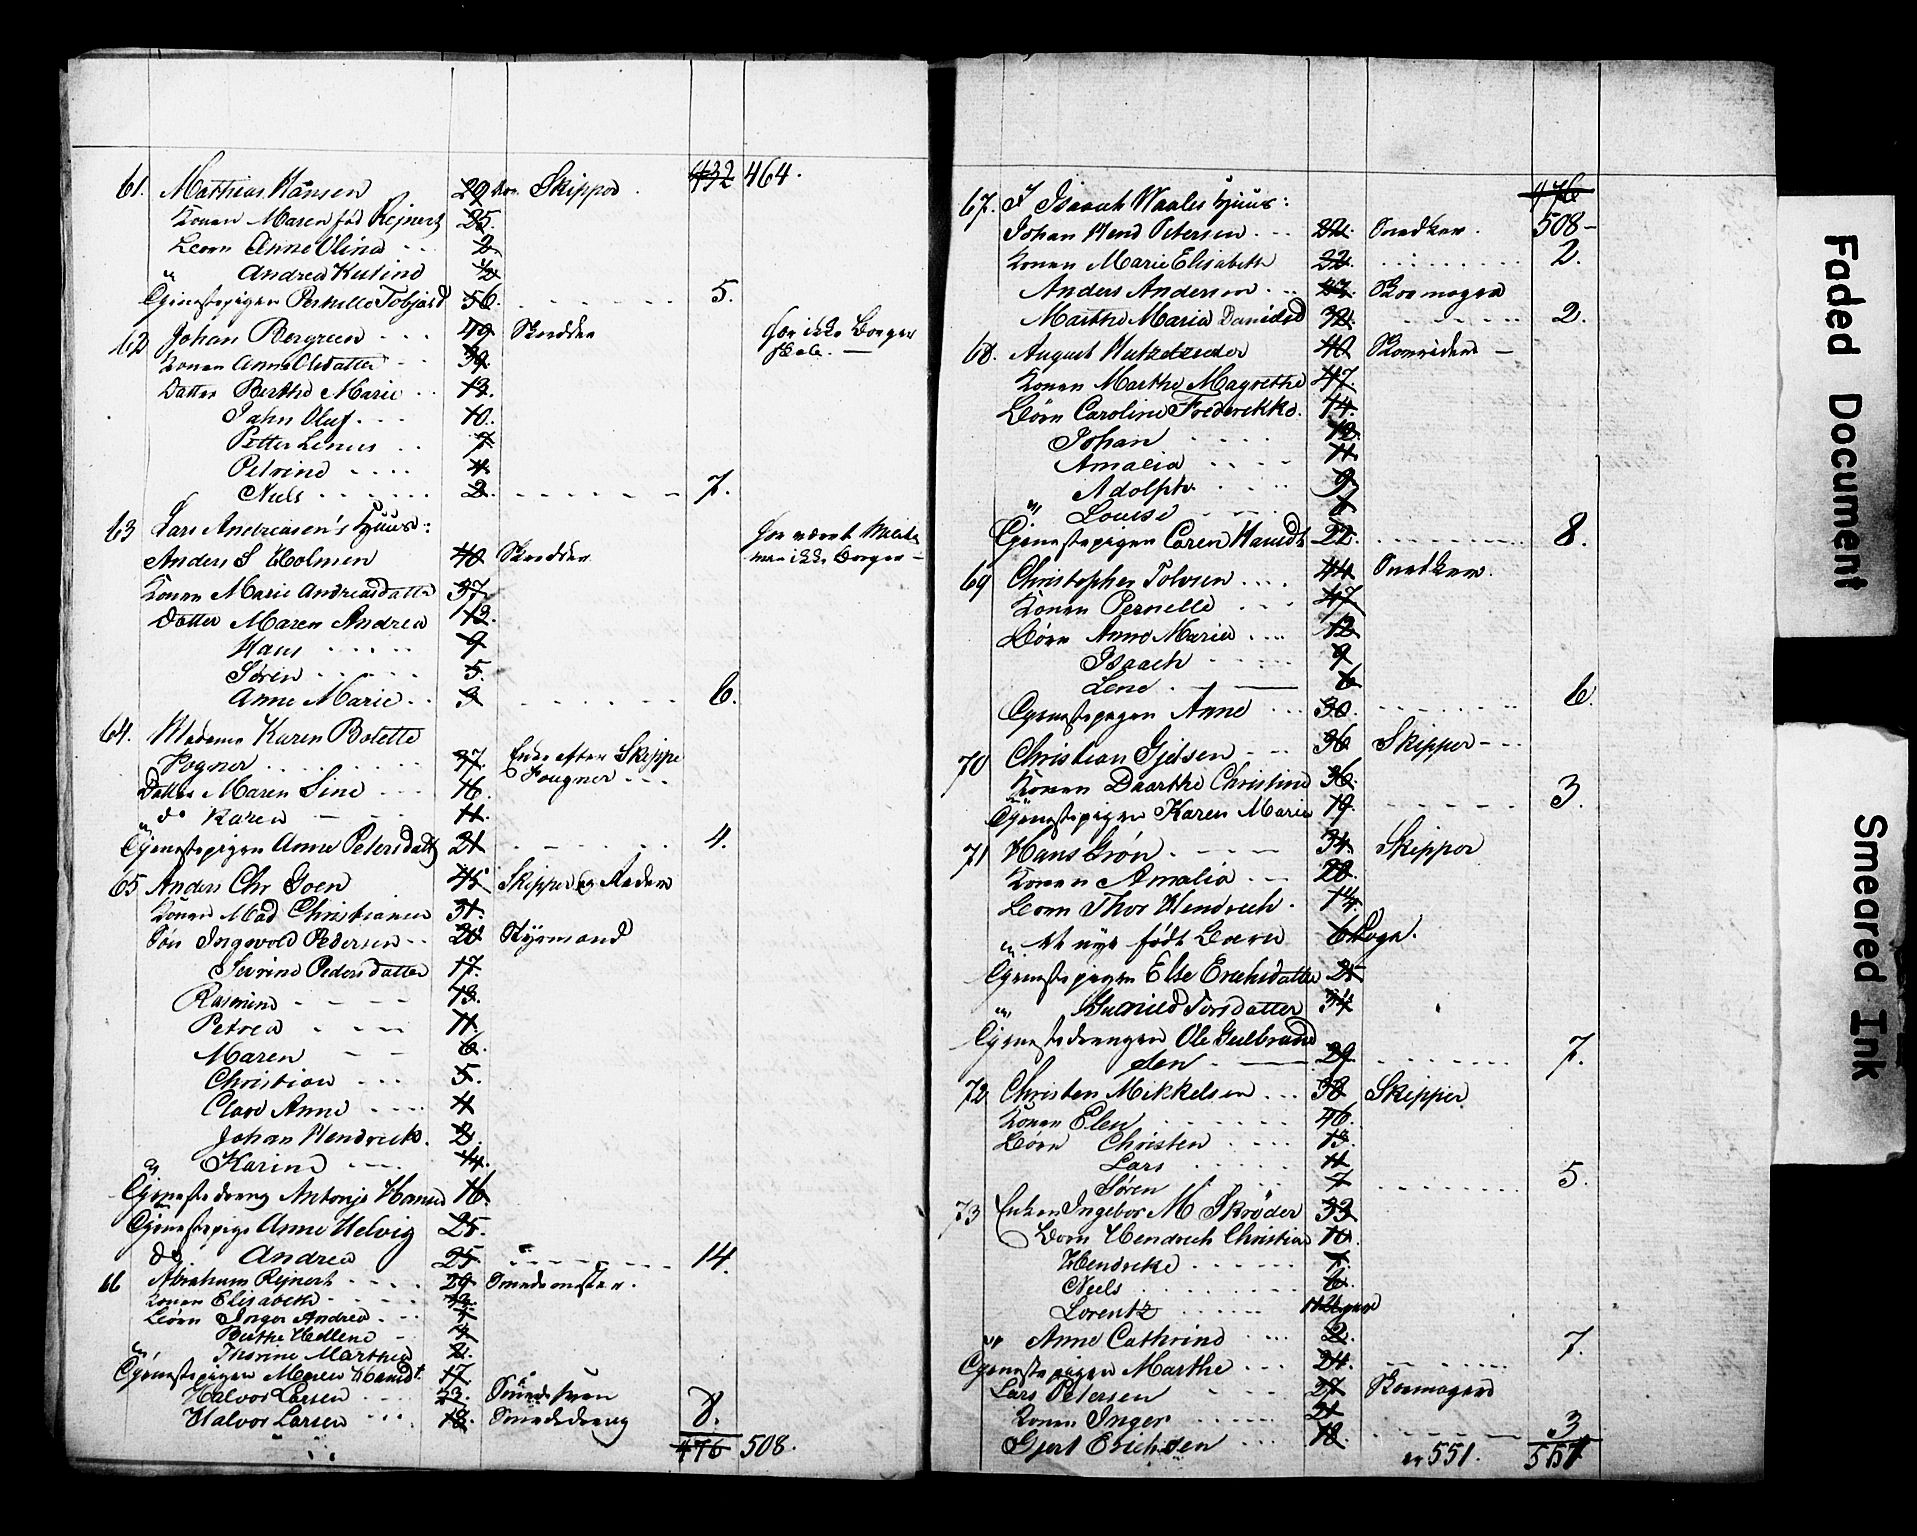 432 464.
61. Mathias Hansen 29 Skipper.
Konen Maren fød Rejnert 25.
Børn Anne Olina 2
" Andrea Kutine ½
Tjenestepigen Pernille Tobjørd 56. 5.
62 Johan Bergreen 49 Skrædder har ikke Borger
Konen Anne Olsdatter 39.
Datter Berthe Marie 13.
Jahn Oluf 10.
Petter Linus 7
Petrine 4
Niels 2. 7.
63 Lars Andreasen's Huus:
Anders S Holmen 40 Skrædder men ikke Borger
Konen Marie Andreasdatter 37.
Datter Maren Andrea 13.
Hans 9
Søren 5.
Anne Marie 3 6.
64. Madame Karen Bolette
Fogner 37. Enke efter Skipper
Fougner
Datter Maren Sine 16.
" do Karen 11.
Tjenestepigen Anne Petersdatt 21 4.
65 Anders Chr Goen 45 Skipper og Reder
Konen Mad Christianen 31.
Søn Ingevold Pedersen 20 Styrmand
Sevrine Pedersdatter 17.
Rasmine 13.
Petrea 11.
Maren 6.
Christian 5.
Clare Anne 4
Johan Hendrich. 2.
" Karine ¼.
Tjenestedreng Antonje Hansen 16
Tjenestepige Anne Helvig 25.
do Andrea 25 14.
66 Abraham Rejnert 29 Smedemester.
Konen Elisabeth
Børn Inger Andrea
Berthe Hellene 4
" Thorine Marthea 2.
Tjenestepigen Maren 17.
Halvor Larsen 23. Smedesven
Halvor Larsen 18. Smededreng 8.
476 508.
476
67. I Isaach Waales Huus:
Johan Hend Petersen 22. Snedker. 508
Konen Marie Elisabeth 22. 2.
Anders Andersen Skomager
Marthe Maria Danielsd 32. 2.
68. August 40
Konen Marthe Magrethe 47.
Børn Caroline Frederekke. 14.
Johan 12.
Amalia 11.
Adolph. 9
" Louise 6
Tjenestepigen Caren 22. 8.
69 Christopher Tolvsen 44 Snedker.
Konen Pernelle 47
Børn Anne Maria 12
Isaach 9
Lene 6
Tjenestepigen Anne 30. 6.
70 Christian Gjelsen 36 Skipper
Konen Daarthe Christine 36.
Tjenestepigen Karen Marie 19. 3.
71 Hans Grøn 34. Skipper
Konen Amalia 28.
Børn Thor Hendrich. 1¼.
" et nye født Barn 6 Dage.
Tjenestepigen Else Erichsdatter 25
" Gunild Torsdatter 34
Tjenestedrengen Ole Gulbrand
sen 29. 7.
72 Christen Mikkelsen 38 Skipper.
Konen Elen 46.
Børn Christen 13.
Lars 11
Søren 7 5.
73 Enken Ingebor M Skrøder 33
Børn Hendrich Christian 10.
Hendrike 7.
Neels 6.
Lorentz
" Anne Cathrine 2. 7.
Tjenestepigen Marthe 24.
Lars Petersen 27 Skomager
Konen Inger 21
Gjert Erichsen 18. 3
551. 551
Faded Document
Smeared Ink